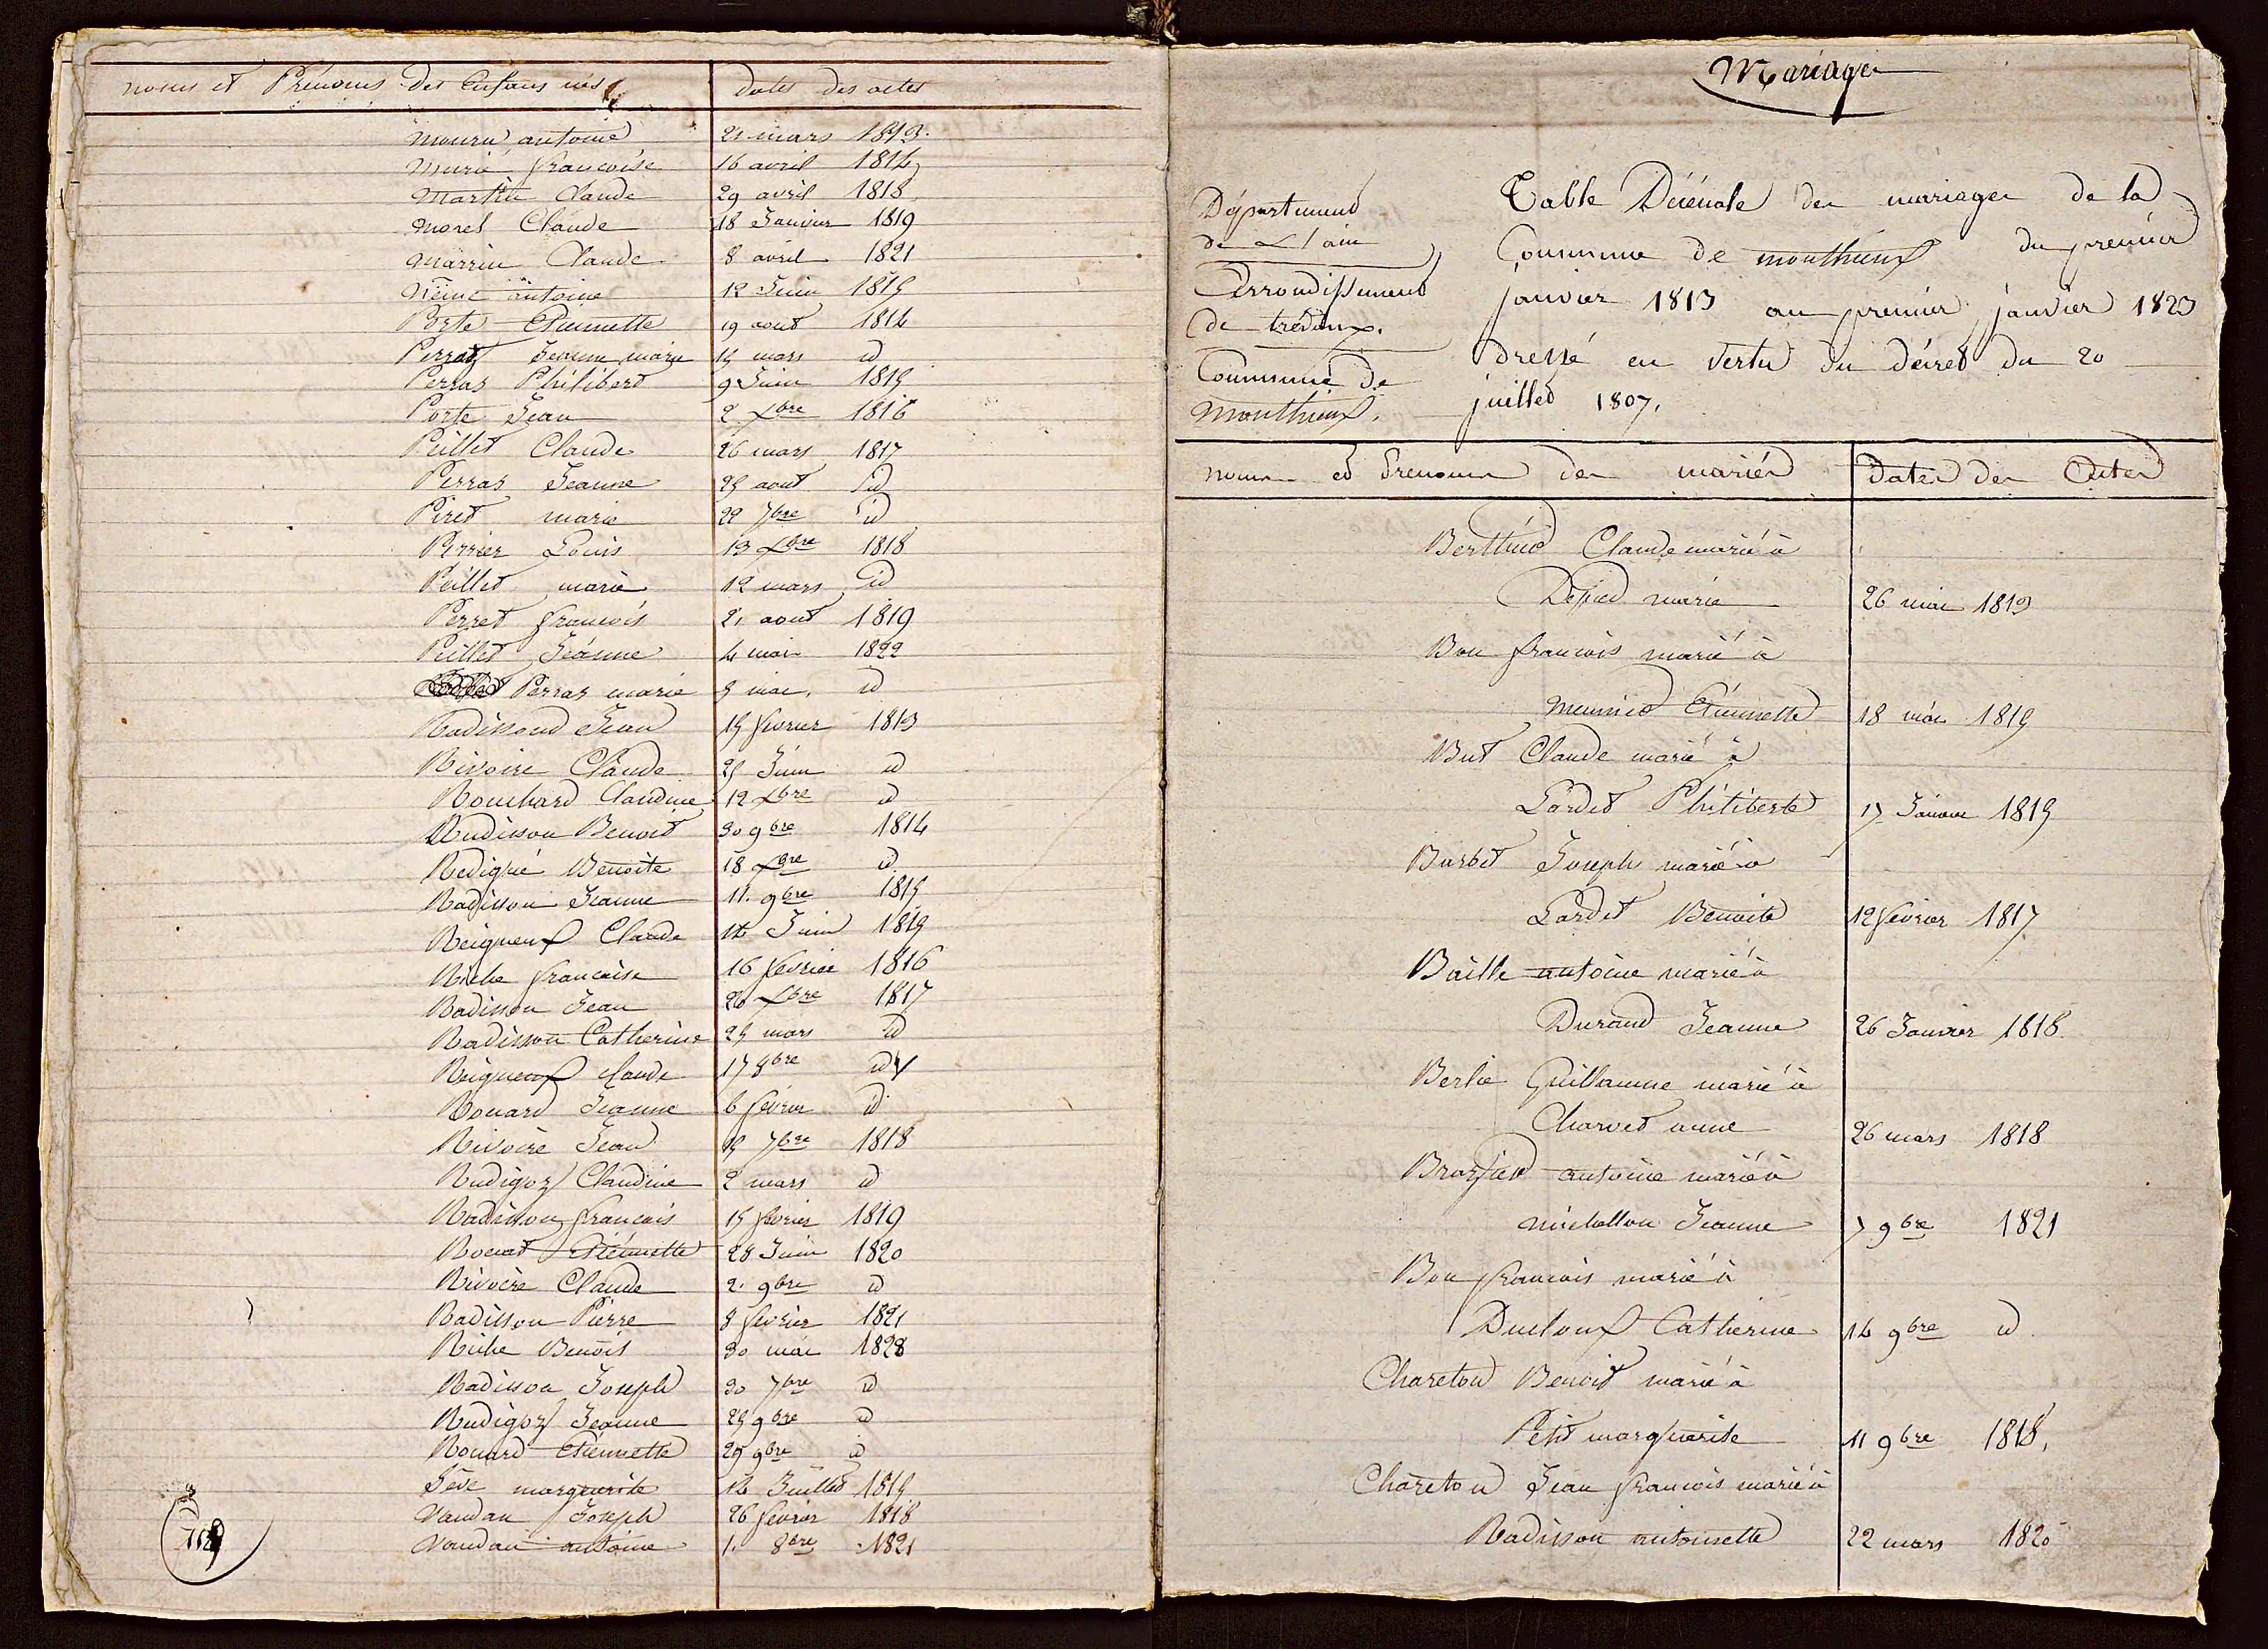 noms et Prénoms des Enfans nés dates des actes
antoine 21 mars 1813.
françoise 16 avril 1814
Martin Claude 29 avril 1818
Morel Claude 18 Janvier 1819
Claude 8 avril 1821
antoine 12 Juin 1815
Porte Etiennette 19 aout 1814
Perraz Jeanne marie 15 mars id
Perras Philibert 9 Juin 1815
Porte Jean 2 xbre 1816
Peillet Claude 26 mars 1817
Perras Jeanne 25 aout id
Piret marie 22 7bre id
Perrier Louis 13 xbre 1818
Peillet marie 12 mars id
Perret françois 21 aout 1819
Peillet Jeanne 4 mai 1822
Perras marie 5 mai. id
Radissond Jean 15 février 1813
Rivoire Claude 25 Juin id
Bouchard Claudine 12 xbre id
Radisson Benoit 30 9bre 1814
Benoite 18 xbre id
Radisson Jeanne 11. 9bre 1815
Reigneux Claude 14 Juin 1815
Riche françoise 16 février 1816
Radisson Jean 26 xbre 1817
Radisson Catherine 25 mars id
Reigneux Claude 17 8bre id
Rouard Jeanne 6 février id
Rivoire Jean 7bre 1818
Rudigoz Claudine 2 mars id
Radisson françois 15 février 1819
Etiennette 28 Juin 1820
Rivoire Claude 2. 9bre id
Radisson Pierre 8 février 1821
Riche Benoit 30 mai 1822
Radisson Joseph 30 7bre id
Rudigoz Jeanne 25 9bre id
Rouard Etiennette 29 9bre id
Sève marguerite 14 Juillet 1815
Vandan Joseph 26 février 1818
Vandan antoine 1. 8bre 1821
Mariages
Département
de L'ain
Arrondissement
de trévoux.
Commune de
monthieux.
Table Décénale des mariages de la
Commune de monthieux du premier
janvier 1813 au premier janvier 1823
dressé en vertu du décret du 20
juillet 1807.
noms et Prenoms des mariés dates des Actes
Claude marié à
marie 26 mai 1813
Bon françois marié à
Meunier Etiennette 18 mai 1815
But Claude marié à
Lardet Philiberte 17 Janvier 1815
Burbet Joseph marié à
Lardet Benoite 12 février 1817
Baille antoine marié à
Durand Jeanne 26 Janvier 1818.
Berlie Guillaume marié à
Charvet anne 26 mars 1818
antoine marié à
michallon Jeanne 7 9bre 1821
Bon françois marié à
Ducloux Catherine 14 9bre id
Chareton Benoit marié à
Petit marguerite 11 9bre 1818.
Chareton Jean françois marié à
Radisson antoinette 22 mars 1820